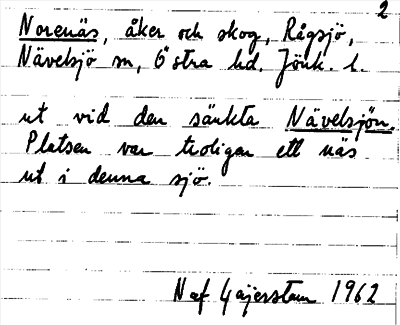 2
Norenäs, åker och skog, Rågsjö,
Nävelsjö sn, Östra hd. Jönk. l.
ut vid den sänkta Nävelsjön.
Platsen var troligen ett näs
ut i denna sjö.
N af Gajerstam 1962